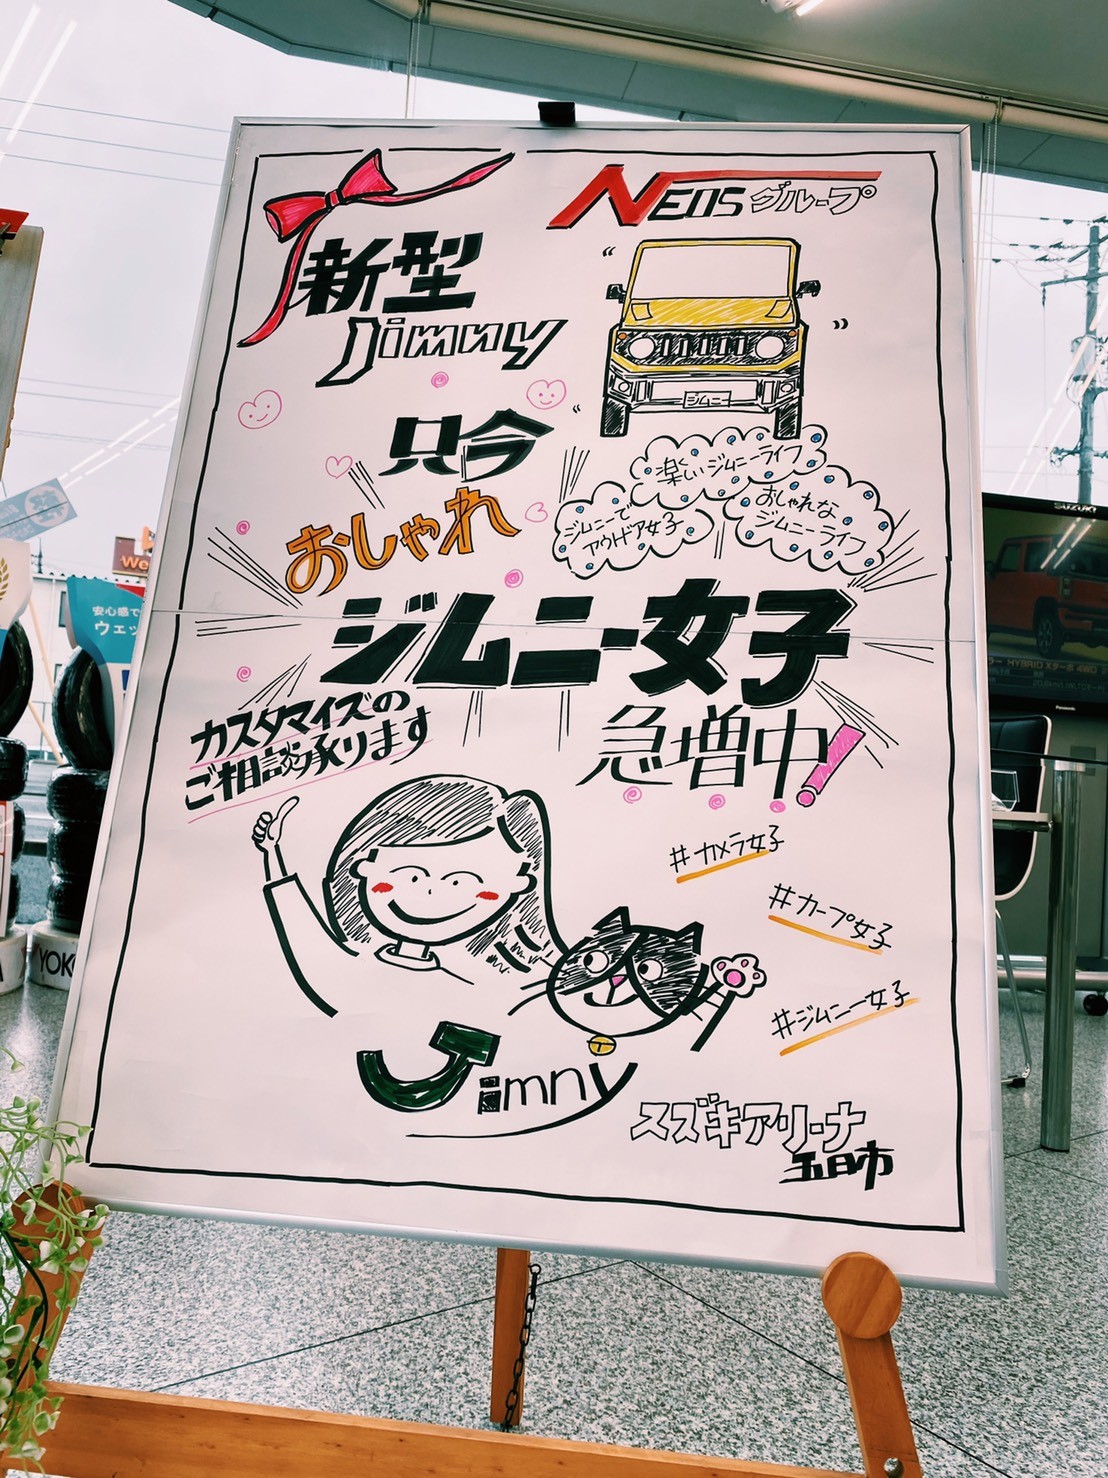 NEOSグループ
新型
Jimny
ジムニー
只今
おしゃれ
楽しいジムニーライフ
ジムニーで
アウトドア女子
おしゃれな
ジムニーライフ
ジムニー女子
急増中!
カスタマイズの
ご相談承ります
#カメラ女子
#カープ女子
#ジムニー女子
Jimny
スズキアリーナ
五日市
SUZUKI
安心感で
ウェッ
We
YOK
HYBRID Xターボ 4WD
Panasonic